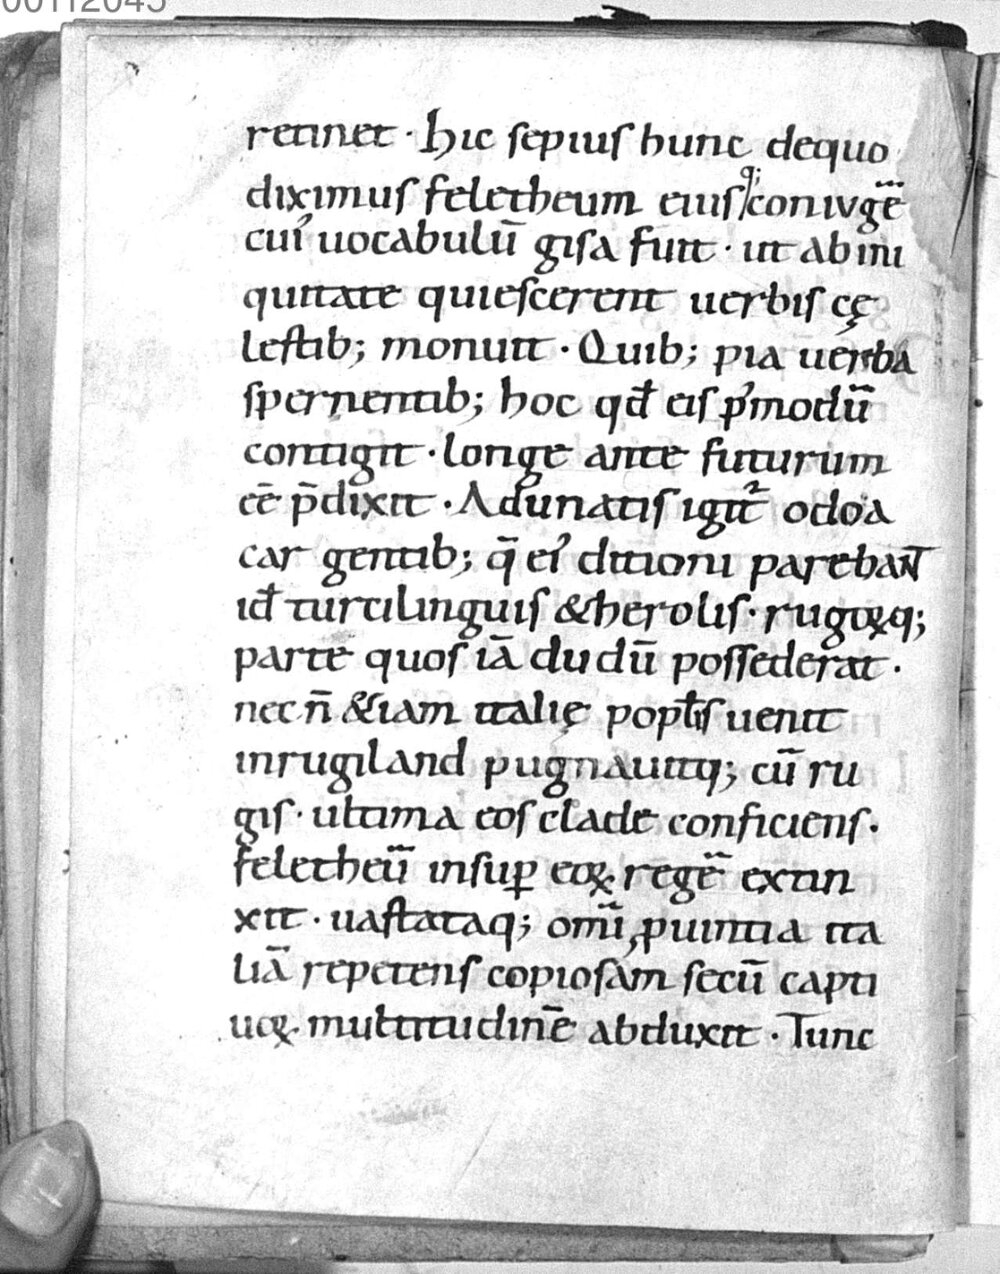 00112045
retinet · hic sepius hunc dequo
diximus feletheum eiusq; coniugē
cui' uocabulū gisa fuit · ut ab ini
quitate quiescerent uerbis cę
lestib; monuit · Quib; pia uerba
spernentib; hoc qđ eis p'modū
contigit · longe ante futurum
eē p̄dixit · Adunatis igit² odoa
car gentib; q̄ ei' ditioni parebant
id̄ turcilinguis & herolis · rugoꝝq;
parte quos iā dudū possederat ·
nec n̄ &iam italię popłis uenit
inrugiland pugnauitq; cū ru
gis · ultima eos clade conficiens ·
feletheū insuꝑ eoꝝ regē extin
xit · uastataq; omī ꝓuintia ita
liā repetens copiosam secū capti
uoꝝ multitudinē abduxit · Tunc